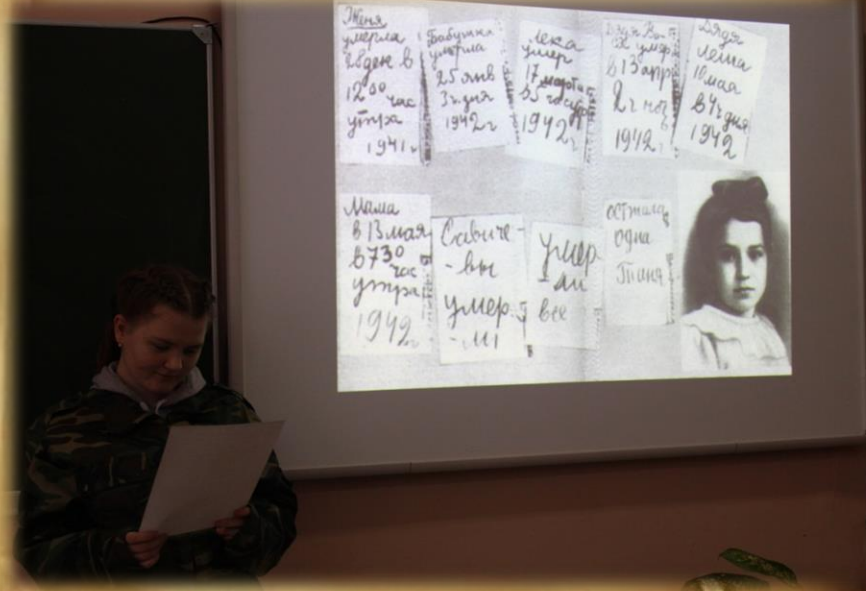 Женя
умерла
28 ден в
12 00 час
утра
1941 г
Бабушка
умерла
25 янв
3 ч дня
1942 г
Лека
умер
17 марта
в 5 часутр
1942 г
Дядя Ва-
ся умер
в 13 апр
2 ч ноч
1942 г
Дядя
Леша
10 мая
в 4 ч дня
1942
Мама
в 13 мая
в 7 30
час
утра
1942 г
Савиче-
-вы
умер
-ли
умер
ли
все
осталась
одна
Таня